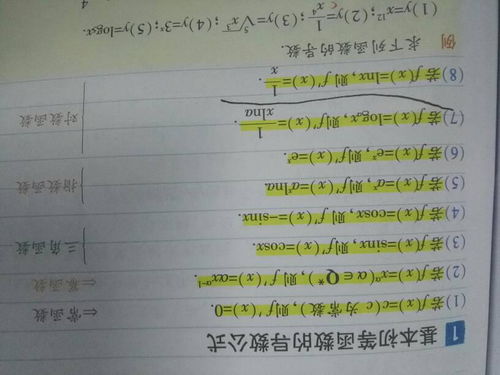 1 基本初等函数的导数公式
(1)若f(x)=c(c为常数),则f′(x)=0. ⇐常函数
(2)若f(x)=xᵅ(α∈Q*),则f′(x)=αxᵅ⁻¹. ⇐幂函数
(3)若f(x)=sinx,则f′(x)=cosx.
三角函数
(4)若f(x)=cosx,则f′(x)=-sinx.
(5)若f(x)=aˣ,则f′(x)=aˣlna.
指数函数
(6)若f(x)=eˣ,则f′(x)=eˣ.
(7)若f(x)=logₐx,则f′(x)=1/(xlna).
对数函数
(8)若f(x)=lnx,则f′(x)=1/x.
例 求下列函数的导数.
(1)y=x¹²;(2)y=1/x⁴;(3)y=⁵√x³;(4)y=3ˣ;(5)y=log₅x